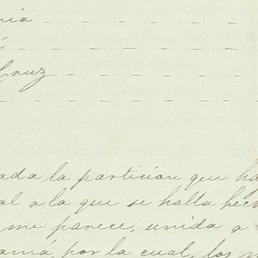 nia
Cruz
ada la particion que ha
al a la que se halla hec
me parece, unida a
amá, por la cual, los